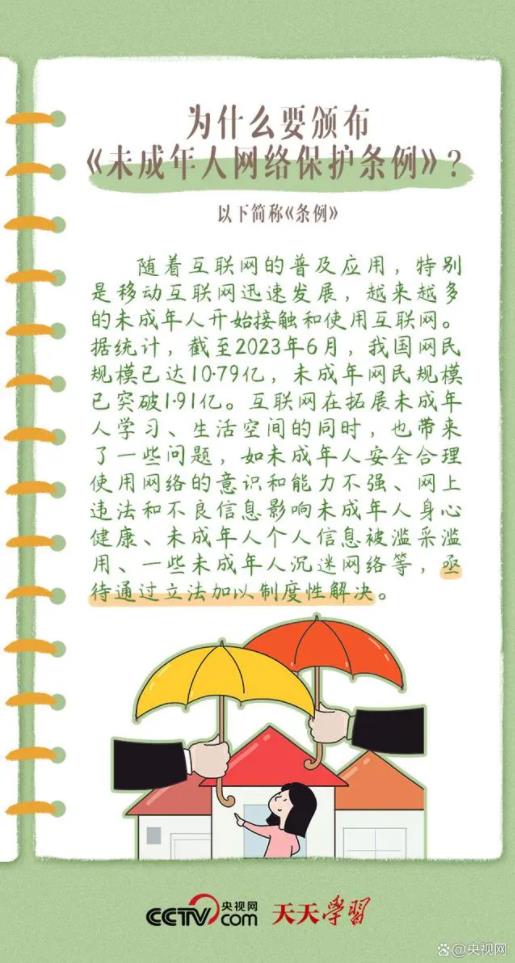 为什么要颁布
《未成年人网络保护条例》？
以下简称《条例》
随着互联网的普及应用，特别
是移动互联网迅速发展，越来越多
的未成年人开始接触和使用互联网。
据统计，截至2023年6月，我国网民
规模已达10.79亿，未成年网民规模
已突破1.91亿。互联网在拓展未成年
人学习、生活空间的同时，也带来
了一些问题，如未成年人安全合理
使用网络的意识和能力不强、网上
违法和不良信息影响未成年人身心
健康、未成年人个人信息被滥采滥
用、一些未成年人沉迷网络等，亟
待通过立法加以制度性解决。
CCTV央视网.com 天天学習
@央视网